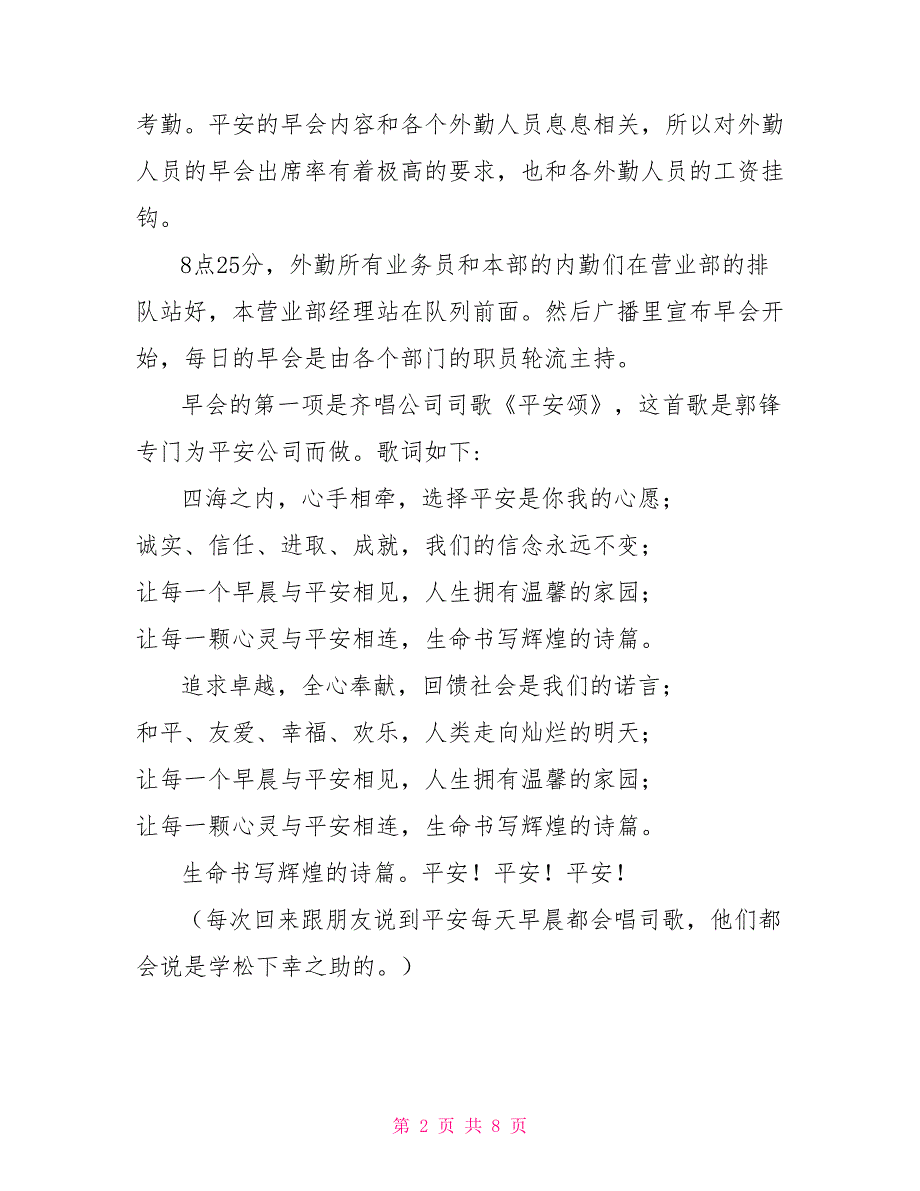 考勤。平安的早会内容和各个外勤人员息息相关，所以对外勤
人员的早会出席率有着极高的要求，也和各外勤人员的工资挂
钩。
8点25分，外勤所有业务员和本部的内勤们在营业部的排
队站好，本营业部经理站在队列前面。然后广播里宣布早会开
始，每日的早会是由各个部门的职员轮流主持。
早会的第一项是齐唱公司司歌《平安颂》，这首歌是郭锋
专门为平安公司而做。歌词如下:
四海之内，心手相牵，选择平安是你我的心愿；
诚实、信任、进取、成就，我们的信念永远不变；
让每一个早晨与平安相见，人生拥有温馨的家园；
让每一颗心灵与平安相连，生命书写辉煌的诗篇。
追求卓越，全心奉献，回馈社会是我们的诺言；
和平、友爱、幸福、欢乐，人类走向灿烂的明天；
让每一个早晨与平安相见，人生拥有温馨的家园；
让每一颗心灵与平安相连，生命书写辉煌的诗篇。
生命书写辉煌的诗篇。平安！平安！平安！
（每次回来跟朋友说到平安每天早晨都会唱司歌，他们都
会说是学松下幸之助的。）
第 2 页 共 8 页